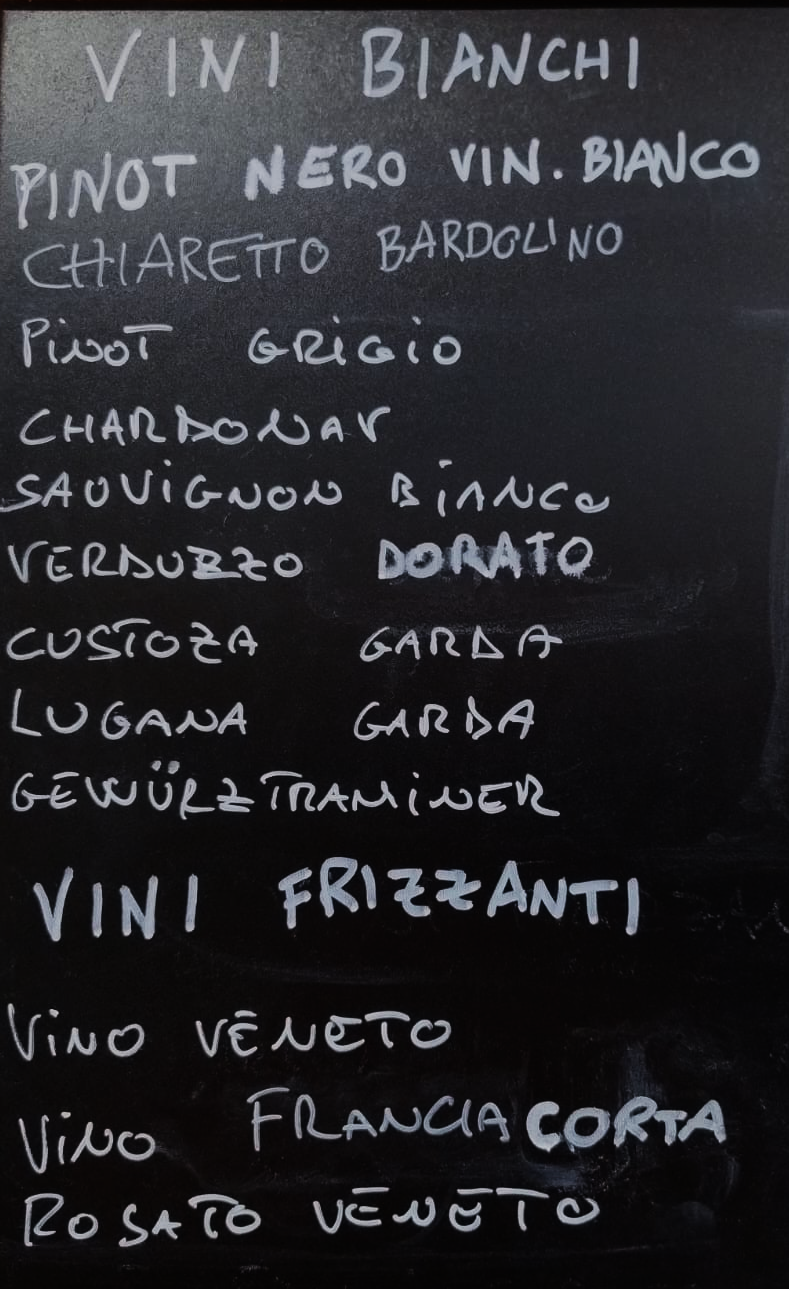 VINI BIANCHI
PINOT NERO VIN. BIANCO
CHIARETTO BARDOLINO
PiNOT GRiGiO
CHARDONAY
SAUViGNON BiANCO
VERDUZZO DORATO
CUSTOZA GARDA
LUGANA GARDA
GEWÜRZTRAMiNER
VINI FRIZZANTI
ViNO VENETO
ViNO FRANCIACORTA
ROSATO VENETO